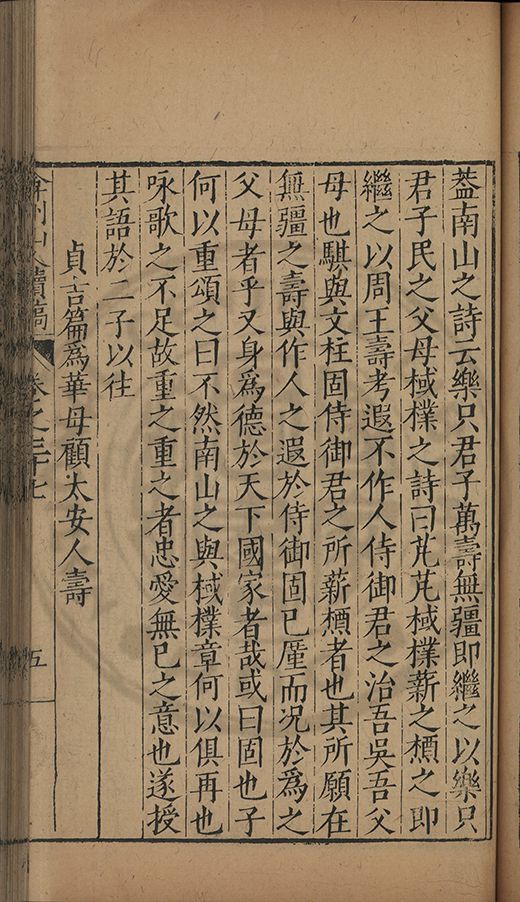 葢南山之詩云樂只君子萬壽無疆即繼之以樂只
君子民之父母棫樸之詩曰芃芃棫樸薪之槱之即
繼之以周王壽考遐不作人侍御君之治吾吳吾父
母也騏與文柱固侍御君之所薪槱者也其所願在
無疆之壽與作人之遐於侍御固已厪而况於爲之
父母者乎又身爲德於天下國家者哉或曰固也子
何以重頌之曰不然南山之與棫樸章何以俱再也
咏歌之不足故重之重之者忠愛無已之意也遂授
其語於二子以往
貞言篇爲華母顧太安人壽
卷之三十七
五